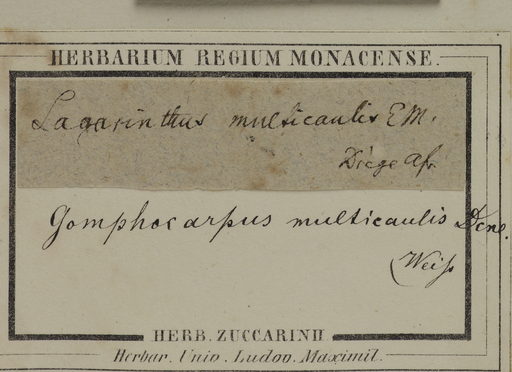 HERBARIUM REGIUM MONACENSE.
Lagarinthus multicaulis E M.
Diège afr.
Gomphocarpus multicaulis Dcne.
(Weiss
HERB. ZUCCARINII
Herbar. Univ. Ludov. Maximil.